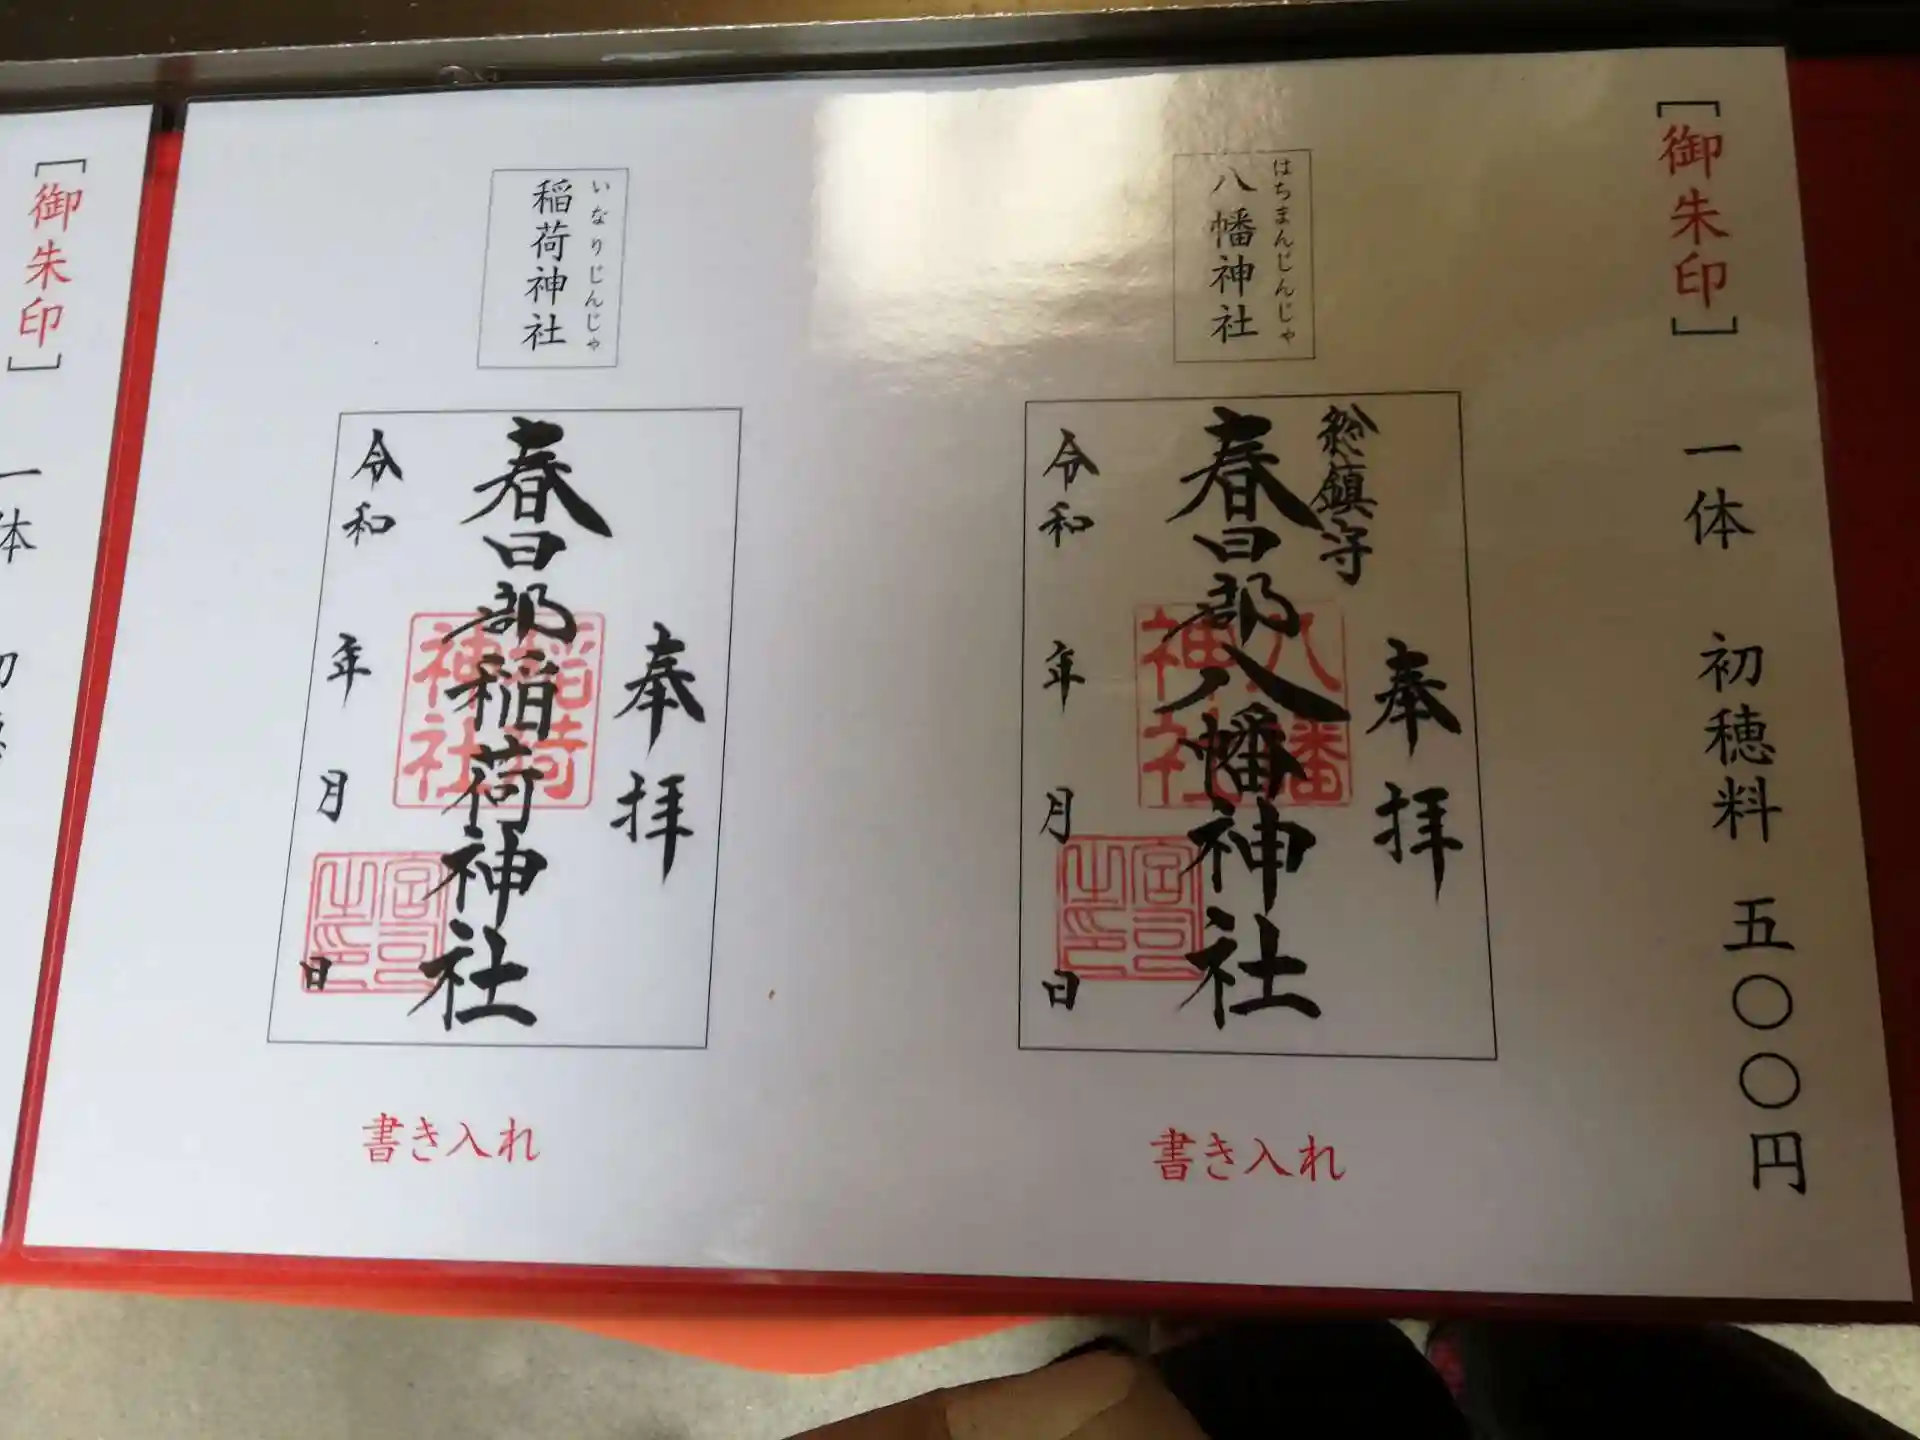 ［御朱印］ 一体 初穂料 五〇〇円
はちまんじんじゃ
八幡神社
総鎮守
奉拝
春日部八幡神社
八幡
神社
宮司
之印
令和 年 月 日
書き入れ
いなりじんじゃ
稲荷神社
奉拝
春日部稲荷神社
神社
宮司
之印
令和 年 月 日
書き入れ
［御朱印］ 一体